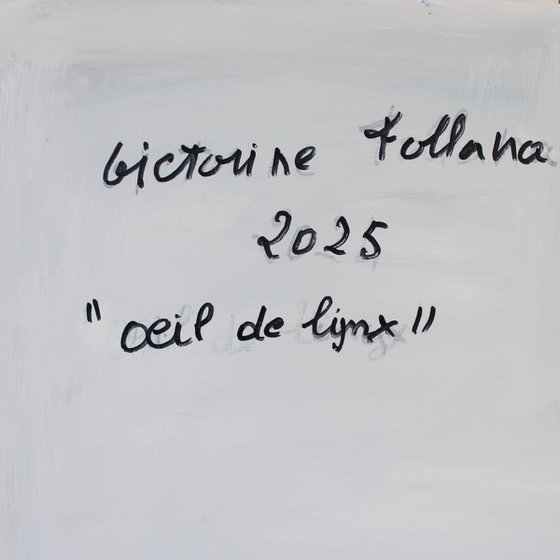 Victorine Follana
2025
"oeil de lynx"